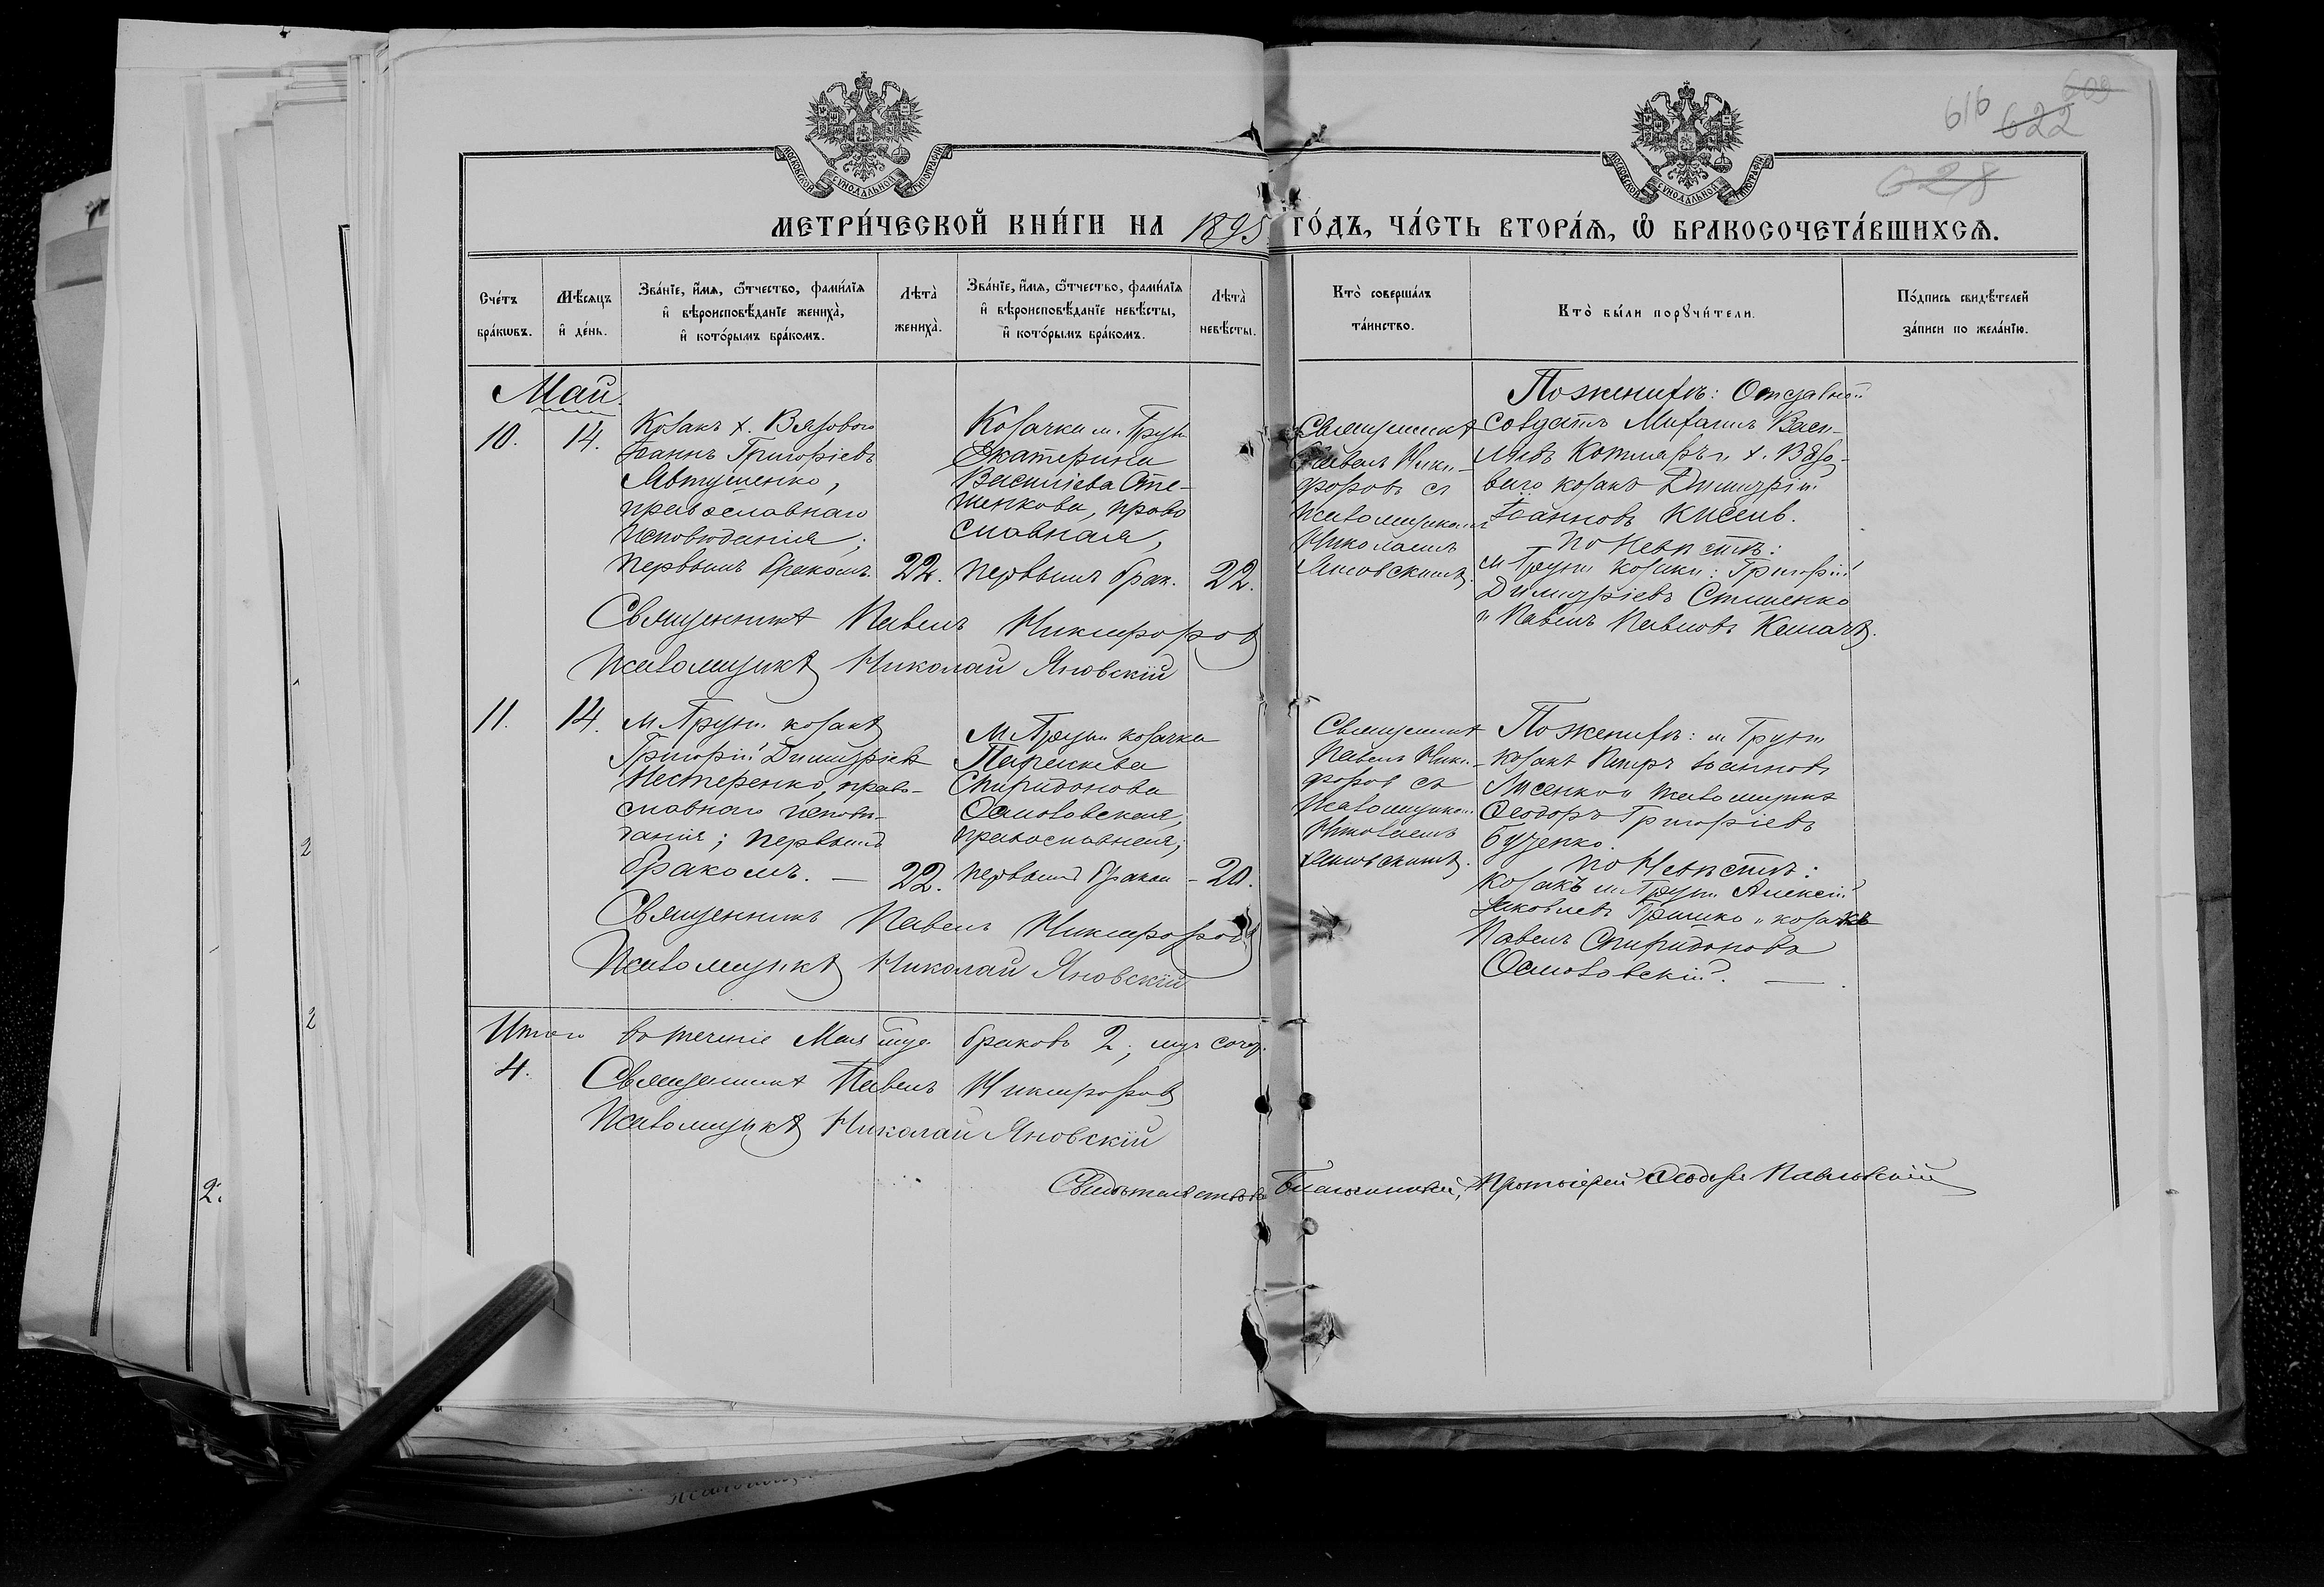 МОСКОВСКОЙ СѴНОДАЛЬНОЙ ТИПОГРАФІИ
МОСКОВСКОЙ СѴНОДАЛЬНОЙ ТИПОГРАФІИ
609
616 622
628
МЕТРИ́ЧЕСКОЙ КНИ́ГИ НА 1895 ГО́ДЪ, ЧА́СТЬ ВТОРА́Ѧ, Ѡ҆ БРАКОСОЧЕТА́ВШИХСѦ.
Сче́тъ
бра́кѡвъ.
Мѣ́сяцъ
и҆ де́нь.
Зва́нїе, и҆́мѧ, ѻ҆́тчество, фами́лїѧ
и҆ вѣроисповѣ́данїе жениха̀,
и҆ кото́рымъ бра́комъ.
Лѣта̀
жениха̀.
Зва́нїе, и҆́мѧ, ѻ҆́тчество, фами́лїѧ
и҆ вѣроисповѣ́данїе невѣ́сты,
и҆ кото́рымъ бра́комъ.
Лѣта̀
невѣ́сты.
Кто̀ соверша́лъ
та́инство.
Кто̀ бы́ли порꙋчи́тели.
По́дпись свидѣ́телей
за́писи по жела́нїю.
Май.
10.
14.
Козакъ х. Вязового
Іоаннъ Григоріевъ
Автушенко,
православнаго
исповѣданія;
первымъ бракомъ.
22.
Козачка м. Грунь
Екатерина
Василіева Сте-
шенкова, право
славная,
первымъ брак.
22.
Священникъ
Павелъ Ники-
форовъ съ
псаломщикомъ
Николаемъ
Яновскимъ.
По женихѣ: Отставной
солдатъ Михаилъ Васи-
ліевъ Котляръ и х. Вязо-
ваго козакъ Димитрій
Іоанновъ Кисель.
По Невѣстѣ:
м Грунь козаки: Григорій
Димитріевъ Стешенко
и Павелъ Павловъ
Священникъ Павелъ Никифоровъ
Псаломщикъ Николай Яновскій
11.
14.
м Грунь козакъ
Григорій Димитріевъ
Нестеренко, право-
славнаго исповѣ-
данія; первымъ
бракомъ. —
22.
м Грунь козачка
Параскева
Спиридонова
Осмоловская,
православная;
первымъ браком —
20.
Священникъ
Павелъ Ники-
форовъ съ
Псаломщиком
Николаемъ
Яновскимъ.
По женихѣ: м Грунь
козакъ Петръ Іоанновъ
Лисенко и псаломщикъ
Ѳеодоръ Григоріевъ
Буценко.
По Невѣстѣ:
Козакъ м Грунь Алексій
Яковлевъ Гришко и козакъ
Павелъ Спиридоновъ
Осмоловскій. —
Священникъ Павелъ Никифоровъ
Псаломщикъ Николай Яновскій
Итого въ теченіе Мая мца браковъ 2, лицъ сочет.
4.
Священникъ Павелъ Никифоровъ
Псаломщикъ Николай Яновскій
Свидѣтельствовалъ Благочинный, Протоіерей Ѳеодоръ Павловскій
2
2
2.